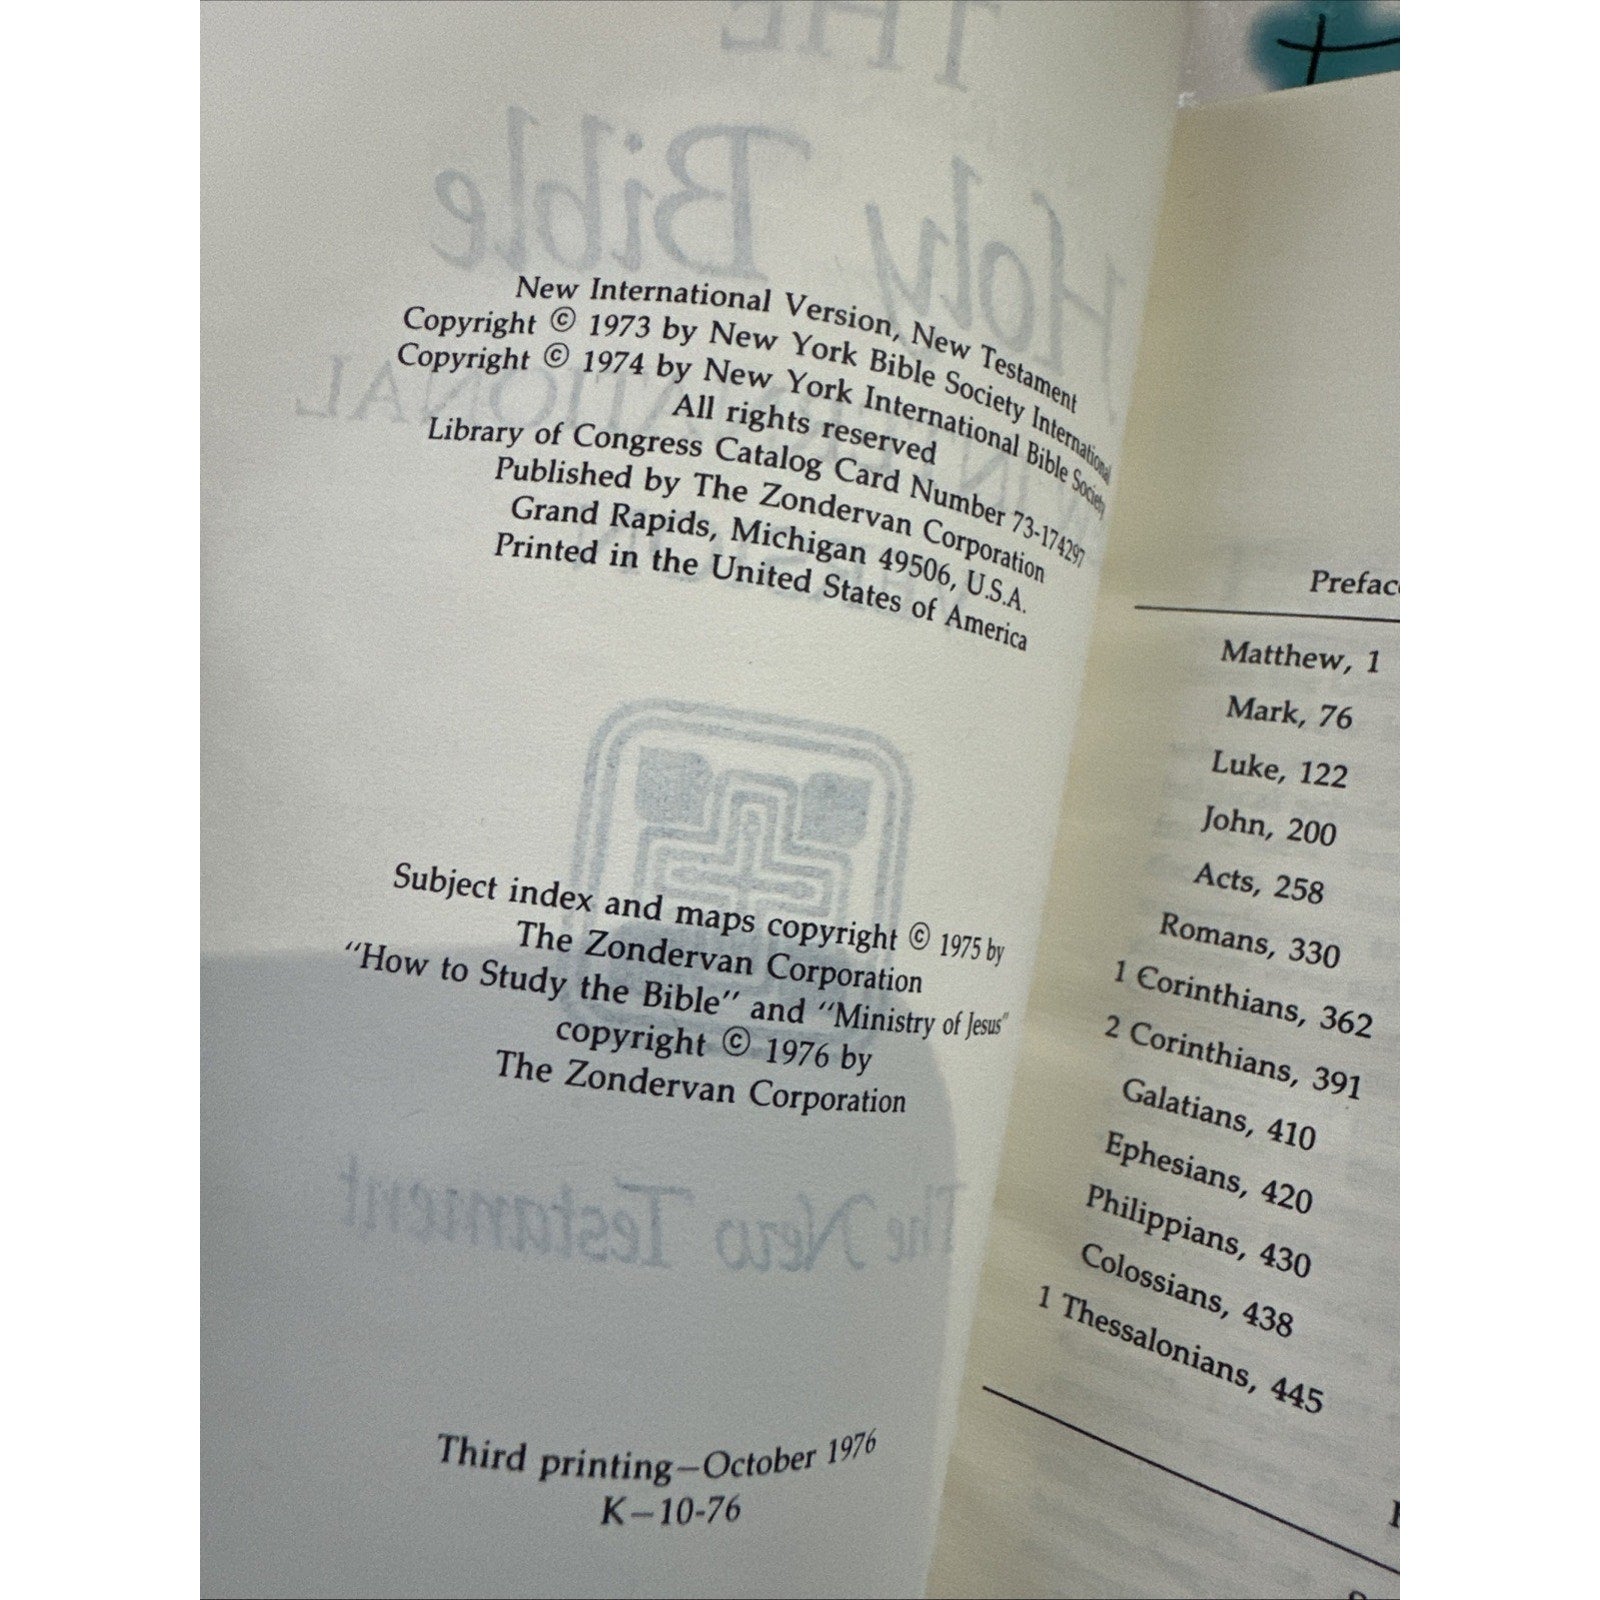 New International Version, New Testament
Copyright © 1973 by New York Bible Society International
Copyright © 1974 by New York International Bible Society
All rights reserved
Library of Congress Catalog Card Number 73-174297
Published by The Zondervan Corporation
Grand Rapids, Michigan 49506, U.S.A.
Printed in the United States of America
Subject index and maps copyright © 1975 by
The Zondervan Corporation
"How to Study the Bible" and "Ministry of Jesus"
copyright © 1976 by
The Zondervan Corporation
Third printing—October 1976
K—10-76
THE
Holy Bible
INTERNATIONAL
VERSION
The New Testament
Matthew, 1
Mark, 76
Luke, 122
John, 200
Acts, 258
Romans, 330
1 Corinthians, 362
2 Corinthians, 391
Galatians, 410
Ephesians, 420
Philippians, 430
Colossians, 438
1 Thessalonians, 445